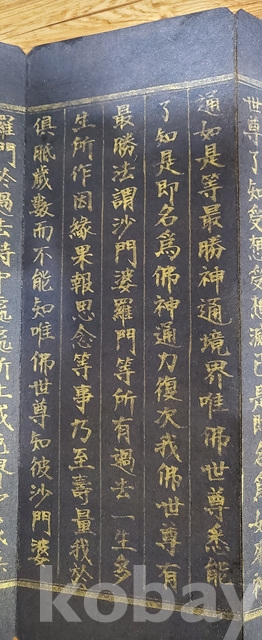 世尊了知受想受想滅已是
通如是等最勝神通境界唯佛世尊悉能
了知是即名為佛神通力復次我佛世尊有
最勝法謂沙門婆羅門等所有過去一生多
生所作因緣果報思念等事乃至壽量或於
俱胝歲數而不能知唯佛世尊知彼沙門婆
羅門於過去時中處處所生或色界中或
kobay